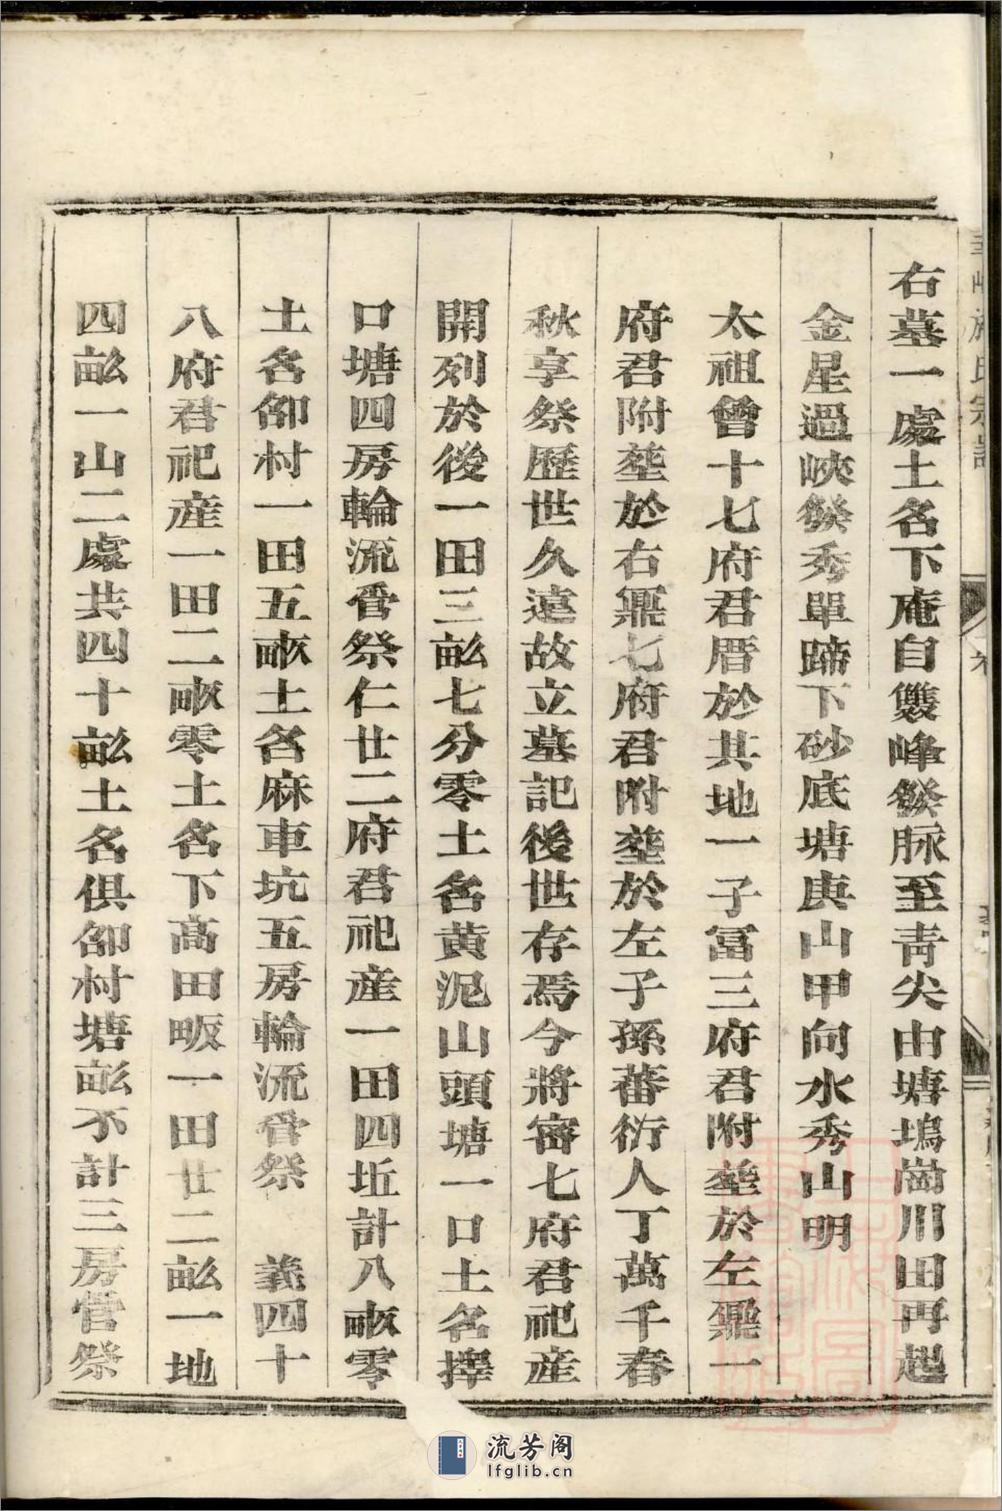 右墓一處土名下庵自䉶峰發脉至靑尖由塘塢崗川田再起
金星過峽發秀單蹄下砂底塘庚山甲向水秀山明
太祖曾十七府君厝於其地一子冨三府君附塟於左鼐一
府君附塟於右鼏七府君附塟於左子孫蕃衍人丁萬千春
秋享祭歷世久遠故立墓記後世存焉今將審七府君祀産
開列於後一田三畝七分零土名黄泥山頭塘一口土名擇
口塘四房輪流眥祭仁廿二府君祀産一田四坵計八畝零
土名卲村一田五畝土名麻車坑五房輪流眥祭 義四十
八府君祀産一田二畝零土名下高田畈一田廿二畝一地
四畝一山二處共四十畝土名俱卲村塘畝不計三房營祭
流芳阁
lfglib.cn